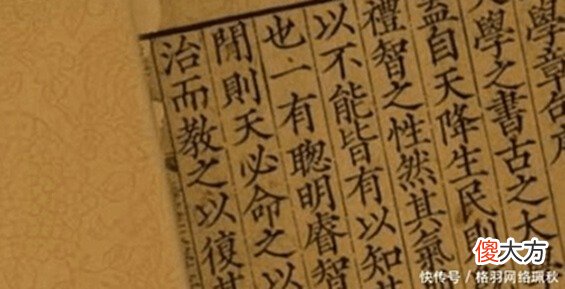 學章句
學之書古之大
蓋自天降生民則
禮智之性然其氣
以不能皆有以知其
也一有聰明睿智
閒則天必命之以
治而教之以復其
傻大方
快传号/格羽网络珮秋